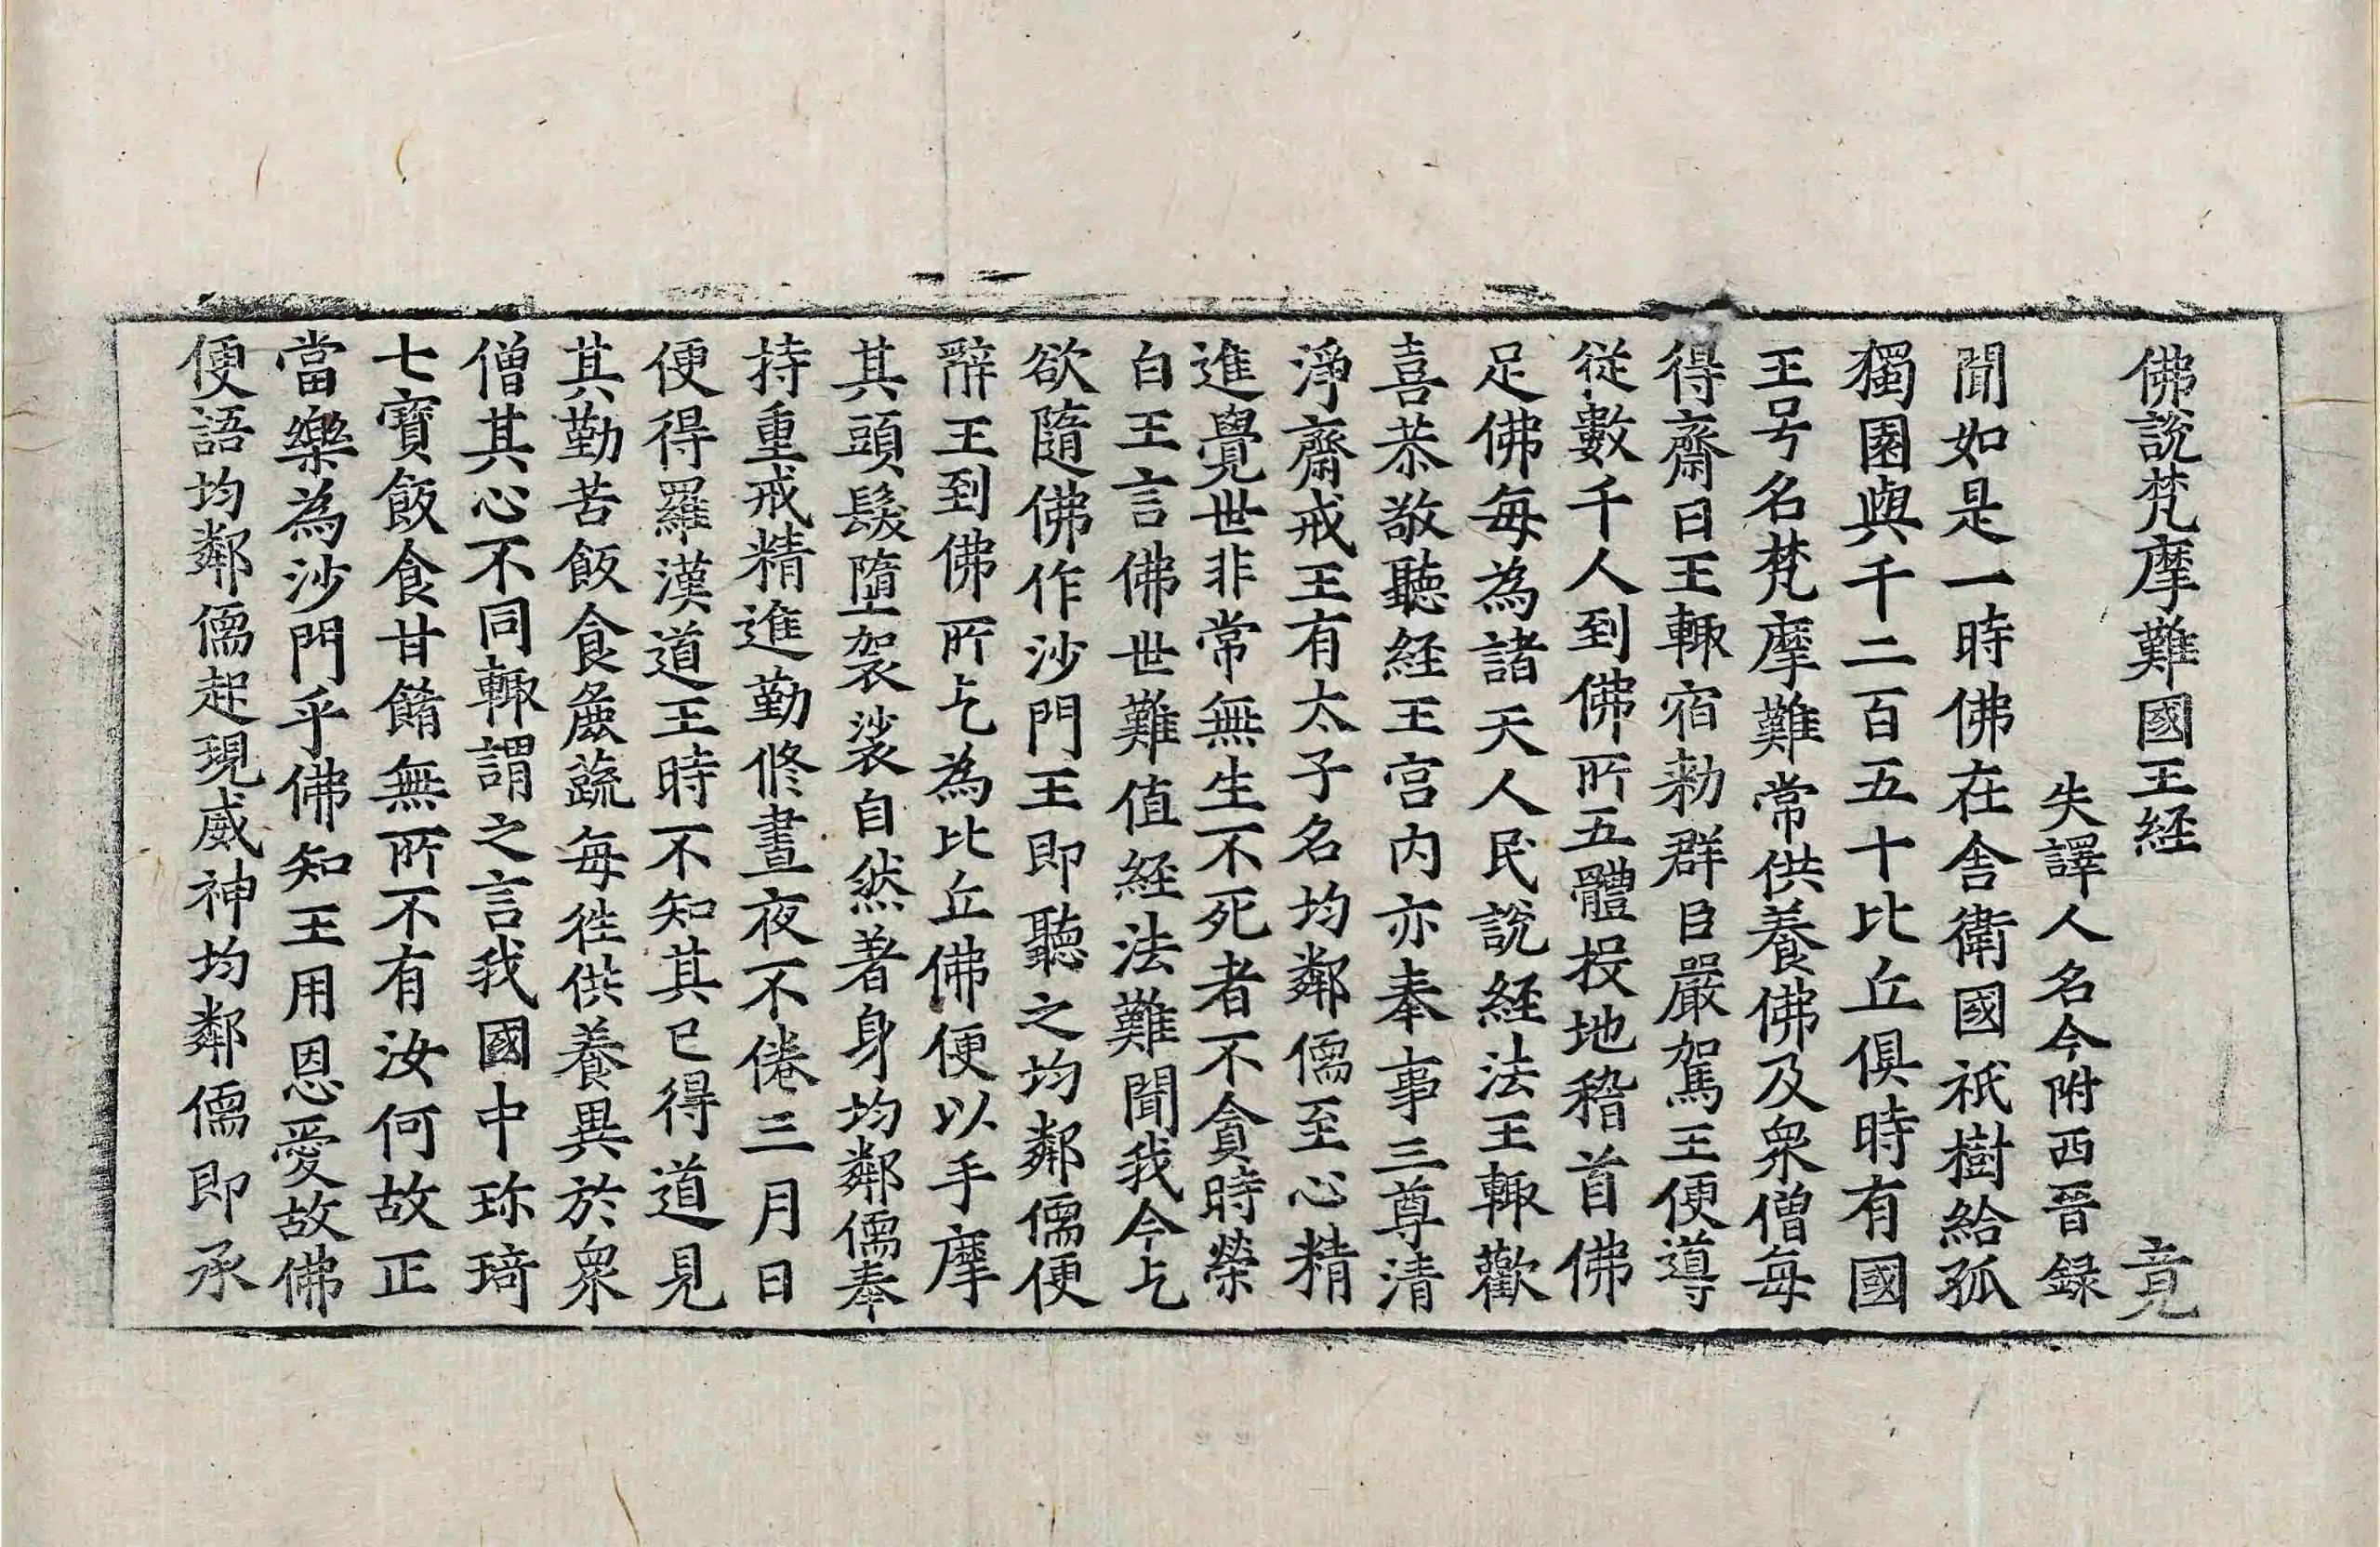 佛說梵摩難國王経 竟
失譯人名今附西晉録
聞如是一時佛在舎衛國祇樹給孤
獨園與千二百五十比丘俱時有國
王号名梵摩難常供養佛及衆僧每
得齋日王輙宿勑群臣嚴駕王便導
從數千人到佛所五體投地稽首佛
足佛每為諸天人民說経法王輙歡
喜恭敬聽経王宫内亦奉事三尊清
淨齋戒王有太子名均鄰儒至心精
進覺世非常無生不死者不貪時榮
白王言佛世難值経法難聞我今乞
欲隨佛作沙門王即聽之均鄰儒便
辭王到佛所乞為比丘佛便以手摩
其頭髮墮袈裟自然著身均鄰儒奉
持重戒精進勤修晝夜不倦三月日
便得羅漢道王時不知其已得道見
其勤苦飯食麁蔬每往供養異於衆
僧其心不同輙謂之言我國中珎琦
七寳飯食甘餚無所不有汝何故正
當樂為沙門乎佛知王用恩愛故佛
便語均鄰儒起現威神均鄰儒即承